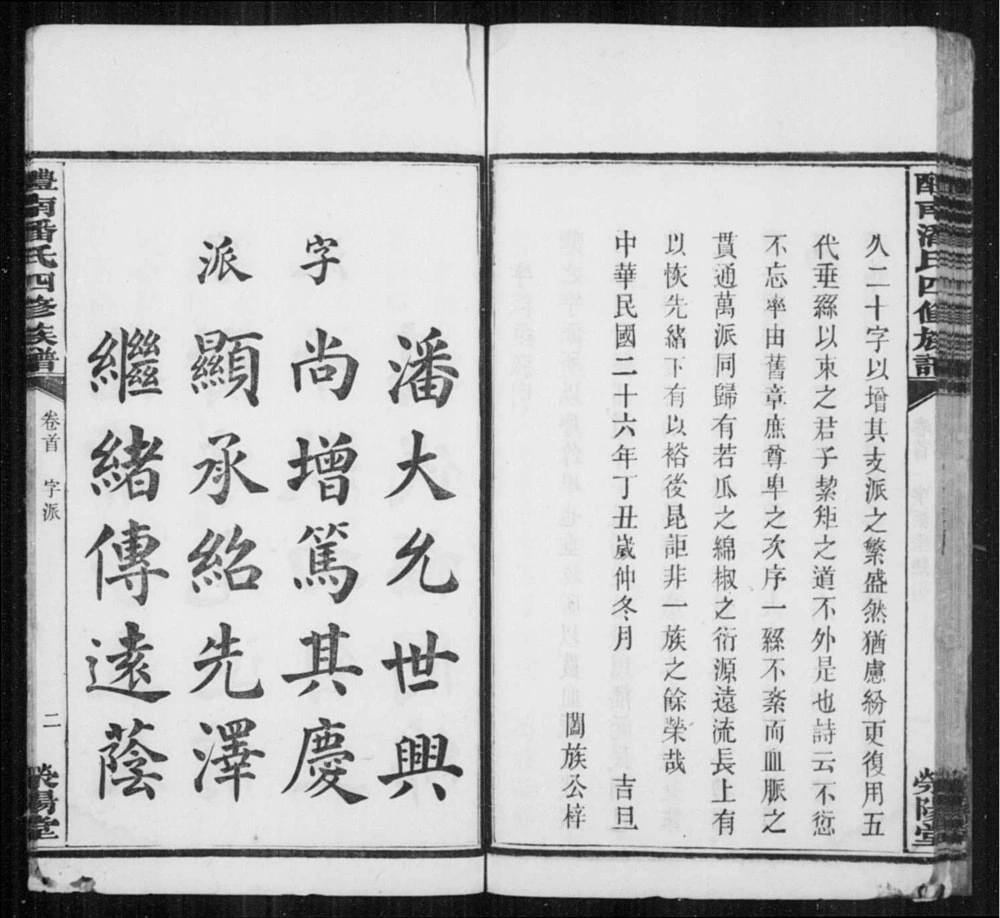 醴南潘氏四修族譜
榮陽堂
久二十字以增其支派之繁盛然猶慮紛更復用五
代垂繇以束之君子絜矩之道不外是也詩云不愆
不忘率由舊章庶尊卑之次序一繇不紊而血脈之
貫通萬派同歸有若瓜之綿椒之衍源遠流長上有
以恢先緒下有以裕後昆詎非一族之餘榮哉
中華民國二十六年丁丑歲仲冬月 吉旦
闔族公梓
潘大允世興
字 尚增篤其慶
派 顯承紹先澤
繼緒傳遠蔭
醴南潘氏四修族譜
卷首 字派
二
榮陽堂